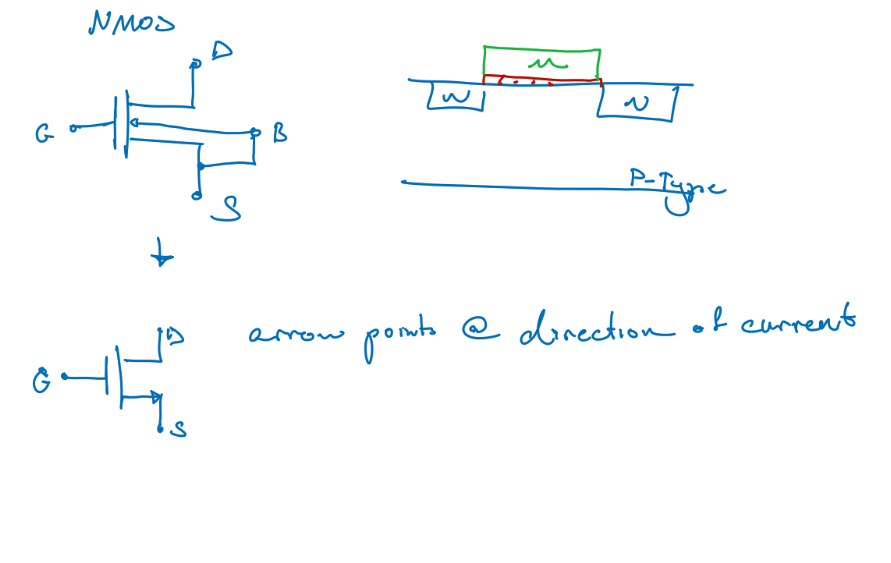 NMOS
D
G
B
S
n
N
N
P-Type
D
G
S
arrow points @ direction of current